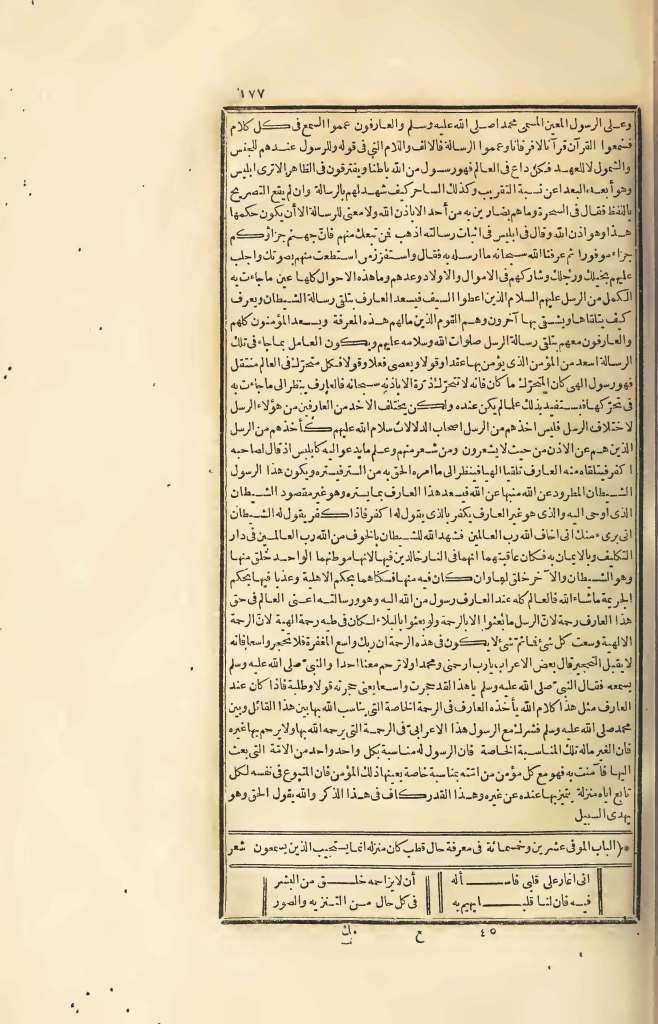 ١٧٧
وعلى الرسول المعين المسمى محمدا صلى الله عليه وسلم والعارفون عموا السمع فى كل كلام
فسمعوا القرآن قرآنا لا فرقانا وعموا الرسالة فالالف واللام التى فى قوله وللرسول عندهم للجنس
والشمول لا للعهد فكل داع فى العالم فهو رسول من الله باطنا ويفترقون فى الظاهر ألا ترى ابليس
وهو أبعد البعداء عن نسبة التقريب وكذلك الساحر كيف شهد لهم بالرسالة وان لم يقع التصريح
باللفظ فقال فى السحرة وما هم بضارين به من أحد الا باذن الله ولا معنى للرسالة الا أن يكون حكمها
هذا وهو اذن الله وقال فى ابليس فى اثبات رسالته اذهب فمن تبعك منهم فان جهنم جزاؤكم
جزاء موفورا ثم عرفنا الله سبحانه ما ارسله به فقال واستفزز من استطعت منهم بصوتك واجلب
عليهم بخيلك ورجلك وشاركهم فى الاموال والاولاد وعدهم وما هذه الاحوال كلها عين ما جاءت به
الكمل من الرسل عليهم السلام الذين اعطوا السيف فيسعد العارف بتلقى رسالة الشيطان ويعرف
كيف يتلقاها ويشقى بها آخرون وهم القوم الذين مالهم هذه المعرفة ويسعد المؤمنون كلهم
والعارفون معهم بتلقى رسالة الرسل صلوات الله وسلامه عليهم ويكون العامل بما جاء فى تلك
الرسالة اسعد من المؤمن الذى يؤمن بها عقدا وقولا ويعصى فعلا وقولا فكل متحرك فى العالم متنقل
فهو رسول الهى كان المتحرك ما كان فانه لا تتحرك ذرة الا باذنه سبحانه فالعارف ينظر الى ما جاءت به
فى تحركها فيستفيد بذلك علما لم يكن عنده ولكن يختلف الاخذ من العارفين من هؤلاء الرسل
لاختلاف الرسل فليس اخذهم من الرسل اصحاب الدلالات سلام الله عليهم كأخذهم من الرسل
الذين هم عن الاذن من حيث لا يشعرون ومن شعر منهم وعلم ما يدعو اليه كابليس اذ قال لصاحبه
اكفر فيتلقاه منه العارف تلقيا الهيا فينظر الى ما امره الحق به من الستر فيستره ويكون هذا الرسول
الشيطان المطرود عن الله منبها عن الله فيسعد هذا العارف بما يستره وهو غير مقصود الشيطان
الذى اوحى اليه والذى هو غير العارف يكفر بالذى يقول له اكفر فاذا كفر يقول له الشيطان
انى برىء منك انى اخاف الله رب العالمين فشهد الله للشيطان بالخوف من الله رب العالمين فى دار
التكليف وبالايمان به فكان عاقبتهما انهما فى النار خالدين فيها لانها موطنهما الواحد خلق منها
وهو الشيطان والآخر خلق لها وان كان فيه منها فسكناهما بحكم الاهلية وعذبا فيها بحكم
الجريمة ما شاء الله فالعالم كله عند العارف رسول من الله اليه وهو ورسالته اعنى العالم فى حق
هذا العارف رحمة لان الرسل ما بعثوا الا بالرحمة ولو بعثوا بالبلاء لكان فى طيه رحمة الهية لان الرحمة
الالهية وسعت كل شئ فاثم شئ لا يكون فى هذه الرحمة ان ربك واسع المغفرة فلا تحجر واسعا فانه
لا يقبل التحجير قال بعض الاعراب يارب ارحمنى ومحمدا ولا ترحم معنا احدا والنبى صلى الله عليه وسلم
يسمعه فقال النبى صلى الله عليه وسلم ياهذا لقد حجرت واسعا يعنى حجرته قولا وطلبة فاذا كان عند
العارف مثل هذا كلام الله يأخذه العارف فى الرحمة الخاصة التى يناسب الله بها بين هذا القائل وبين
محمد صلى الله عليه وسلم فشرك مع الرسول هذا الاعرابى فى الرحمة التى يرحمه الله بها ولا يرحم بها غيره
فان الغير ماله تلك المناسبة الخاصة فان الرسول له مناسبة بكل واحد واحد من الامة التى بعث
اليها فآمنت به فهو مع كل مؤمن من امته بمناسبة خاصة يعينها ذلك المؤمن فان المتبوع فى نفسه لكل
تابع اياه منزلة يتميز بها عنده عن غيره وهذا القدر كاف فى هذا الذكر والله يقول الحق وهو
يهدى السبيل
*(الباب الموفى عشرين وخمسمائة فى معرفة حال قطب كان منزله انما يستجيب الذين يسمعون شعر
انى اغار على قلبى فاسأله أن لا يزاحمه خلق من البشر
فيه فان لنا قلبا يهيم به فى كل حال من التنزيه والصور
٤٥ ع نك